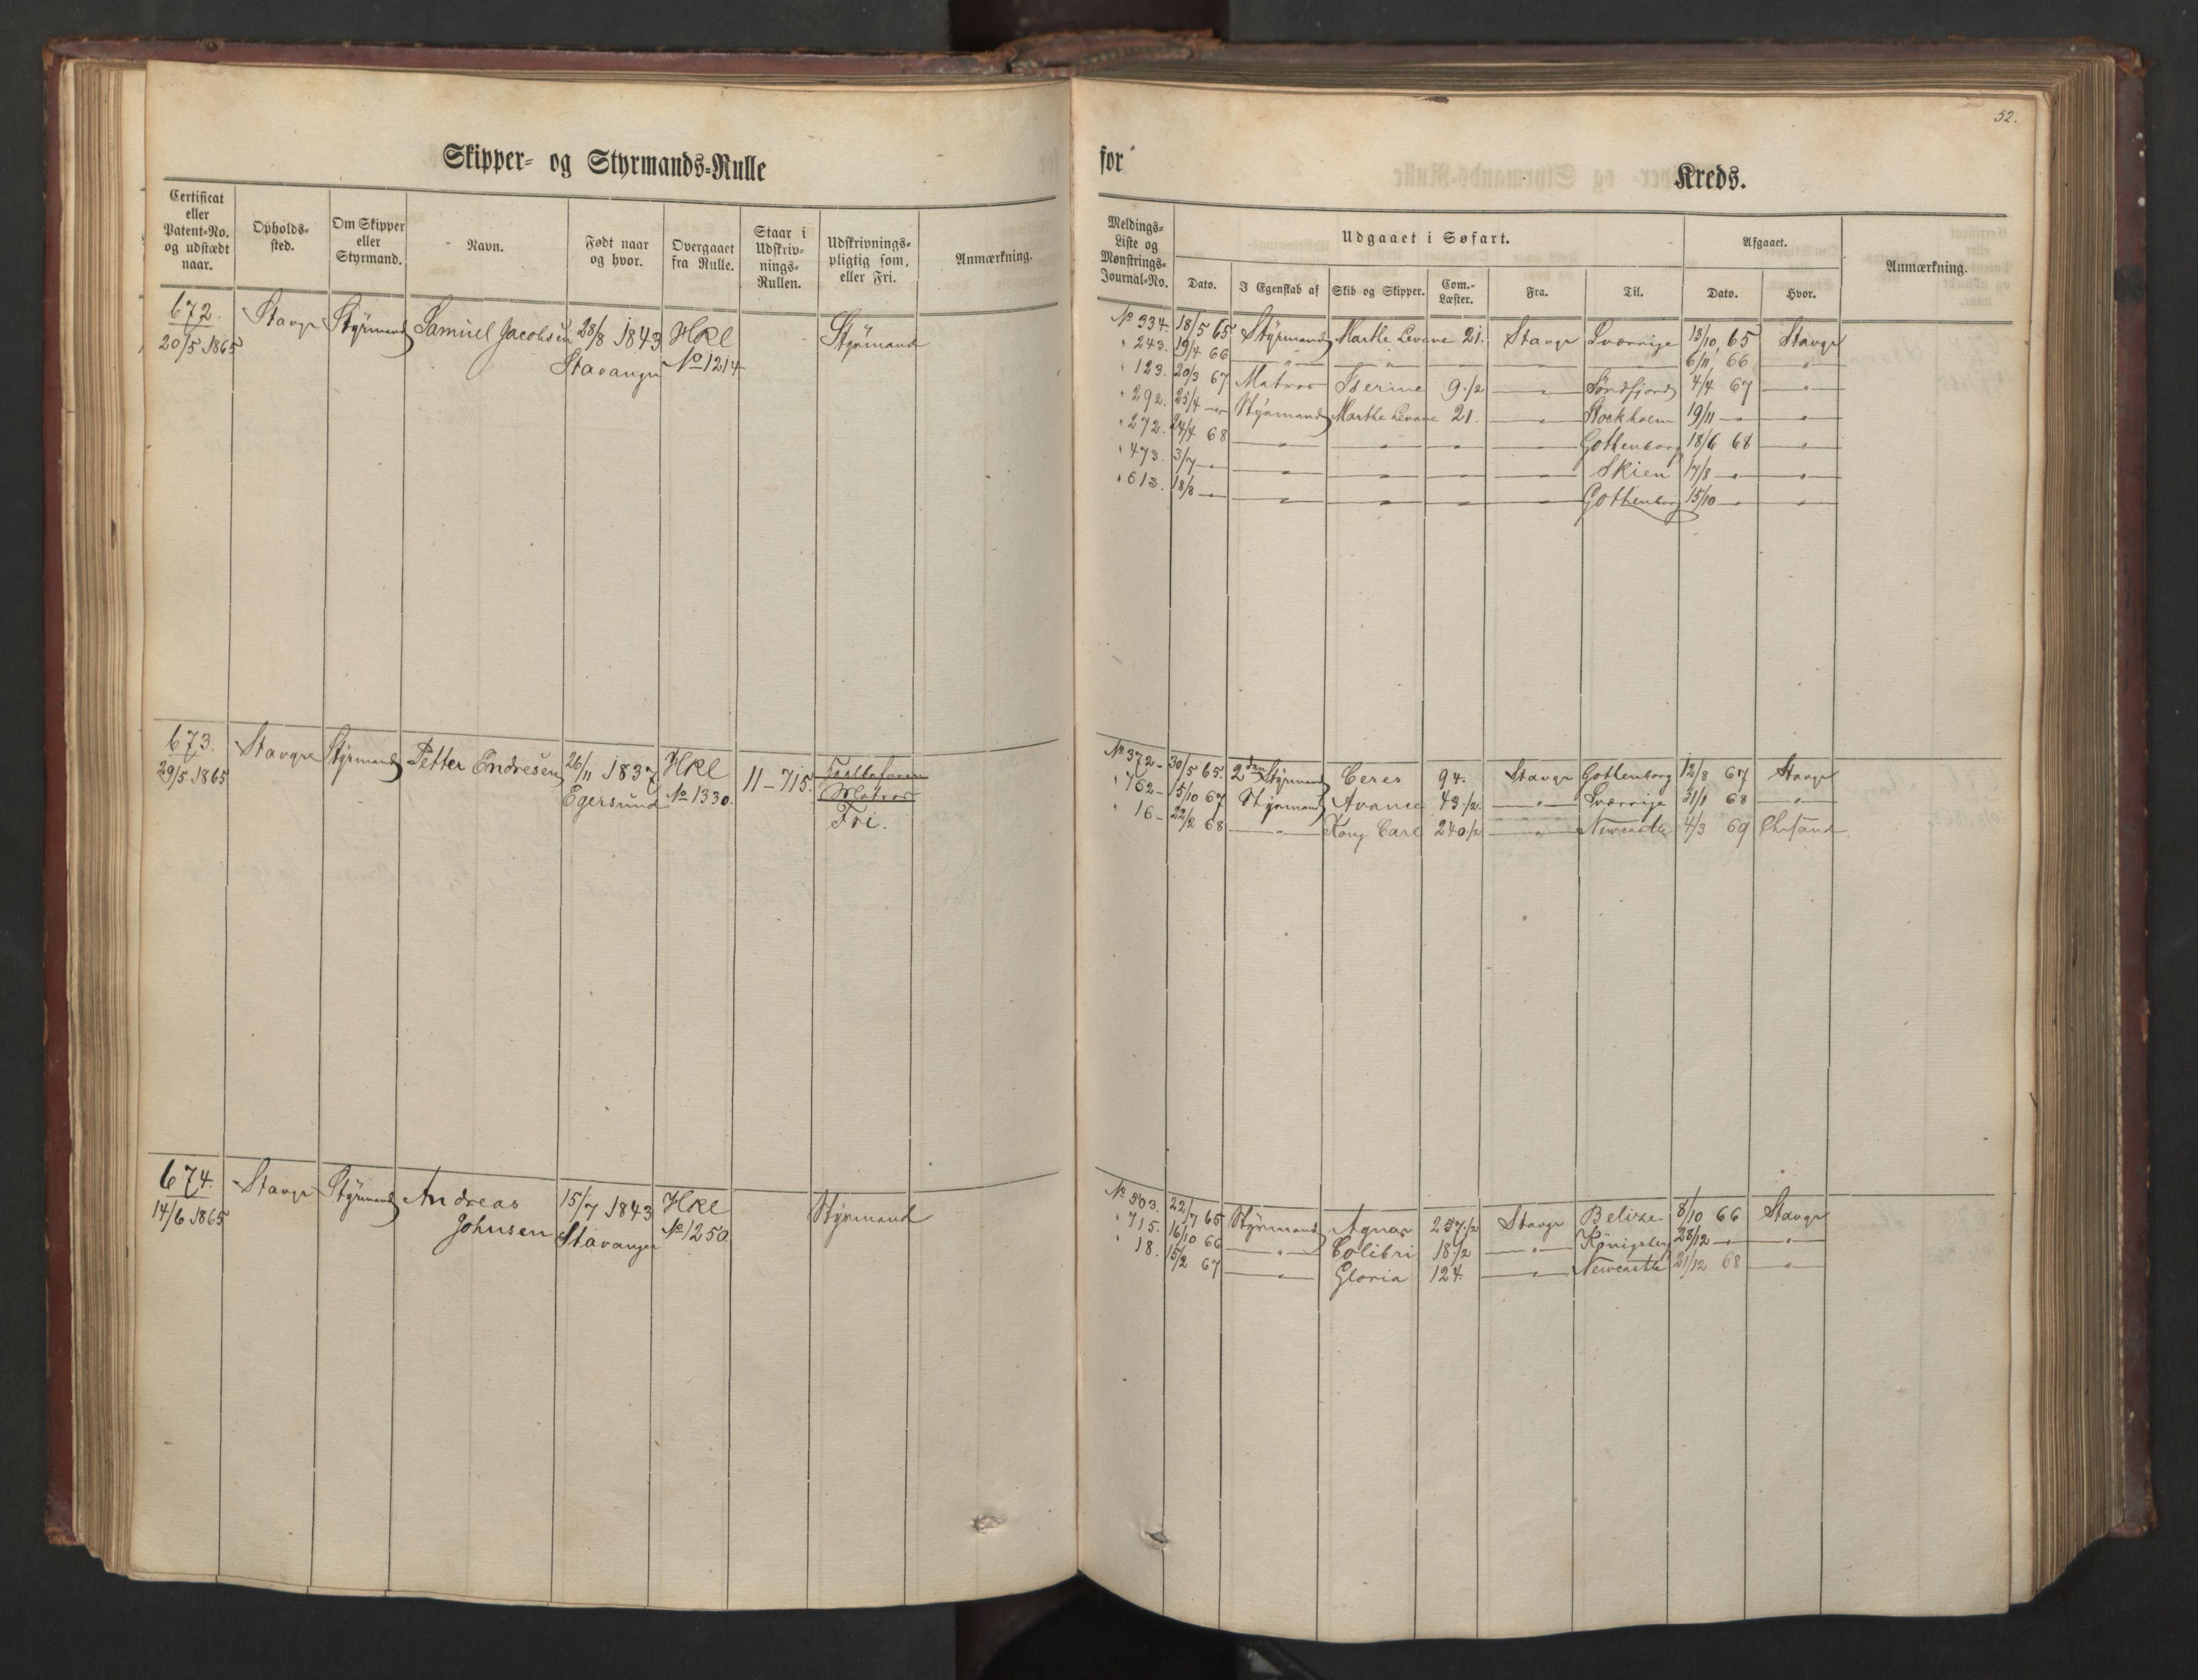 52.
Skipper- og Styrmands-Rulle
for
Kreds.
Certificat eller Patent-No. og udstædt naar.
Opholds-sted.
Om Skipper eller Styrmand.
Navn.
Født naar og hvor.
Overgaaet fra Rulle.
Staar i Udskriv-nings-Rullen.
Udskrivnings-pligtig som, eller Fri.
Anmærkning.
Meldings-Liste og Mønstrings-Journal-No.
Udgaaet i Søfart.
Afgaaet.
Anmærkning.
Dato.
I Egenskab af
Skib og Skipper.
Com.-Læster.
Fra.
Til.
Dato.
Hvor.
672. Stavgr Styrmand Samuel Jacobsen 28/8 1843 Hkl Styrmand
20/5 1865 Stavanger No 1214
No 334. 18/5 65 Styrmand Marthe Levane 21. Stavgr Sverrige 13/10 65 Stavgr
" 243. 19/4 66 — " — — " — — " — 6/11 66 "
" 123. 20/3 67 Matros Iserine 9 1/2 — " — Søndfjord 4/4 67 — " —
" 292. 25/4 — " Styrmand Marthe Levane 21. — " — Stockholm 19/11 — " — " —
" 272. 24/4 68 — " — — " — — " — — " — Gothenborg 18/6 68 — " —
" 473. 3/7 — " — " — — " — — " — — " — Skien 17/8 — " — " —
" 613. 18/8 — " — " — — " — — " — — " — Gothenborg 15/10 — " — " —
673. Stavgr Styrmand Petter Endresen 26/11 1837 Hkl 11 – 715.
29/5 1865 Egersund No 1330. Matros
Fri.
No 372 – 30/5 65. 2den Styrmand Ceres 94. Stavgr Gothenborg 12/8 67 Stavgr
" 762 – 15/10 67 Styrmand Avance 43 1/2. — " — Sverrige 31/1 68 — " —
" 16 – 22/2 68 — " — Kong Carl 240 1/2 — " — Newcastle 4/3 69 Chrsand
674. Stavgr Styrmand Andreas 15/7 1843 Hkl Styrmand
14/6 1865 Johnsen Stavanger No 1250.
No 503. 22/7 65 Styrmand Agnar 257 1/2 Stavgr Belize 8/10 66 Stavgr
" 715. 16/10 66 — " — Colibri 18 1/2 — " — Königsberg 28/12 — " — " —
" 18. 15/2 67 — " — Gloria 124 — " — Newcastle 21/12 68 — " —